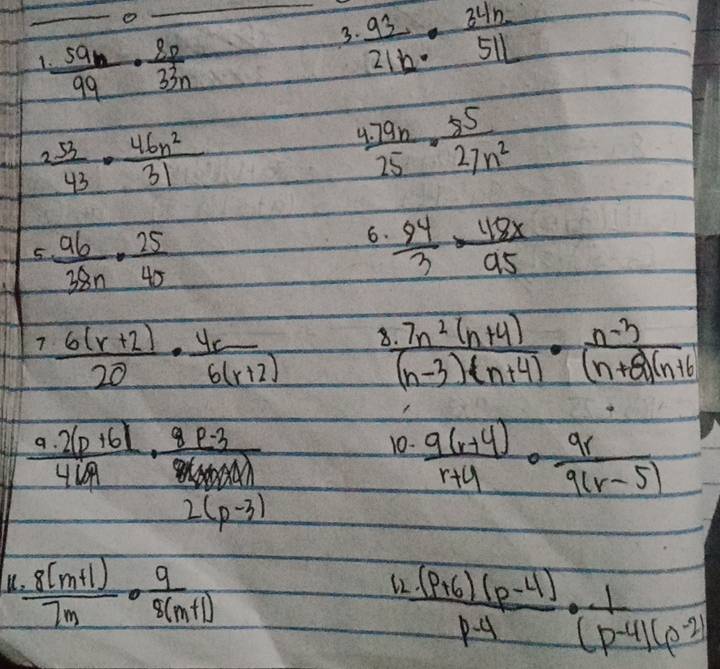 1. 59n/99 • 8p/33n
3. 93/21n • 34n/51L
2 53/43 • 46n²/31
4. 79n/25 • 85/27n²
5. 96/38n • 25/45
6. 84/3 • 48x/95
7 6(r+2)/20 • 4r/6(r+2)
8. 7n²(n+4)/(n-3)(n+4) • n-3/(n+8)(n+6
9. 2(p+6)/4 • 8 p-3/2(p-3)
10. 9(r+4)/r+4 • 9r/9(r-5)
11. 8(m+1)/7m • 9/8(m+1)
12. (p+6)(p-4)/p-4 • 1/(p-4)(p-2)